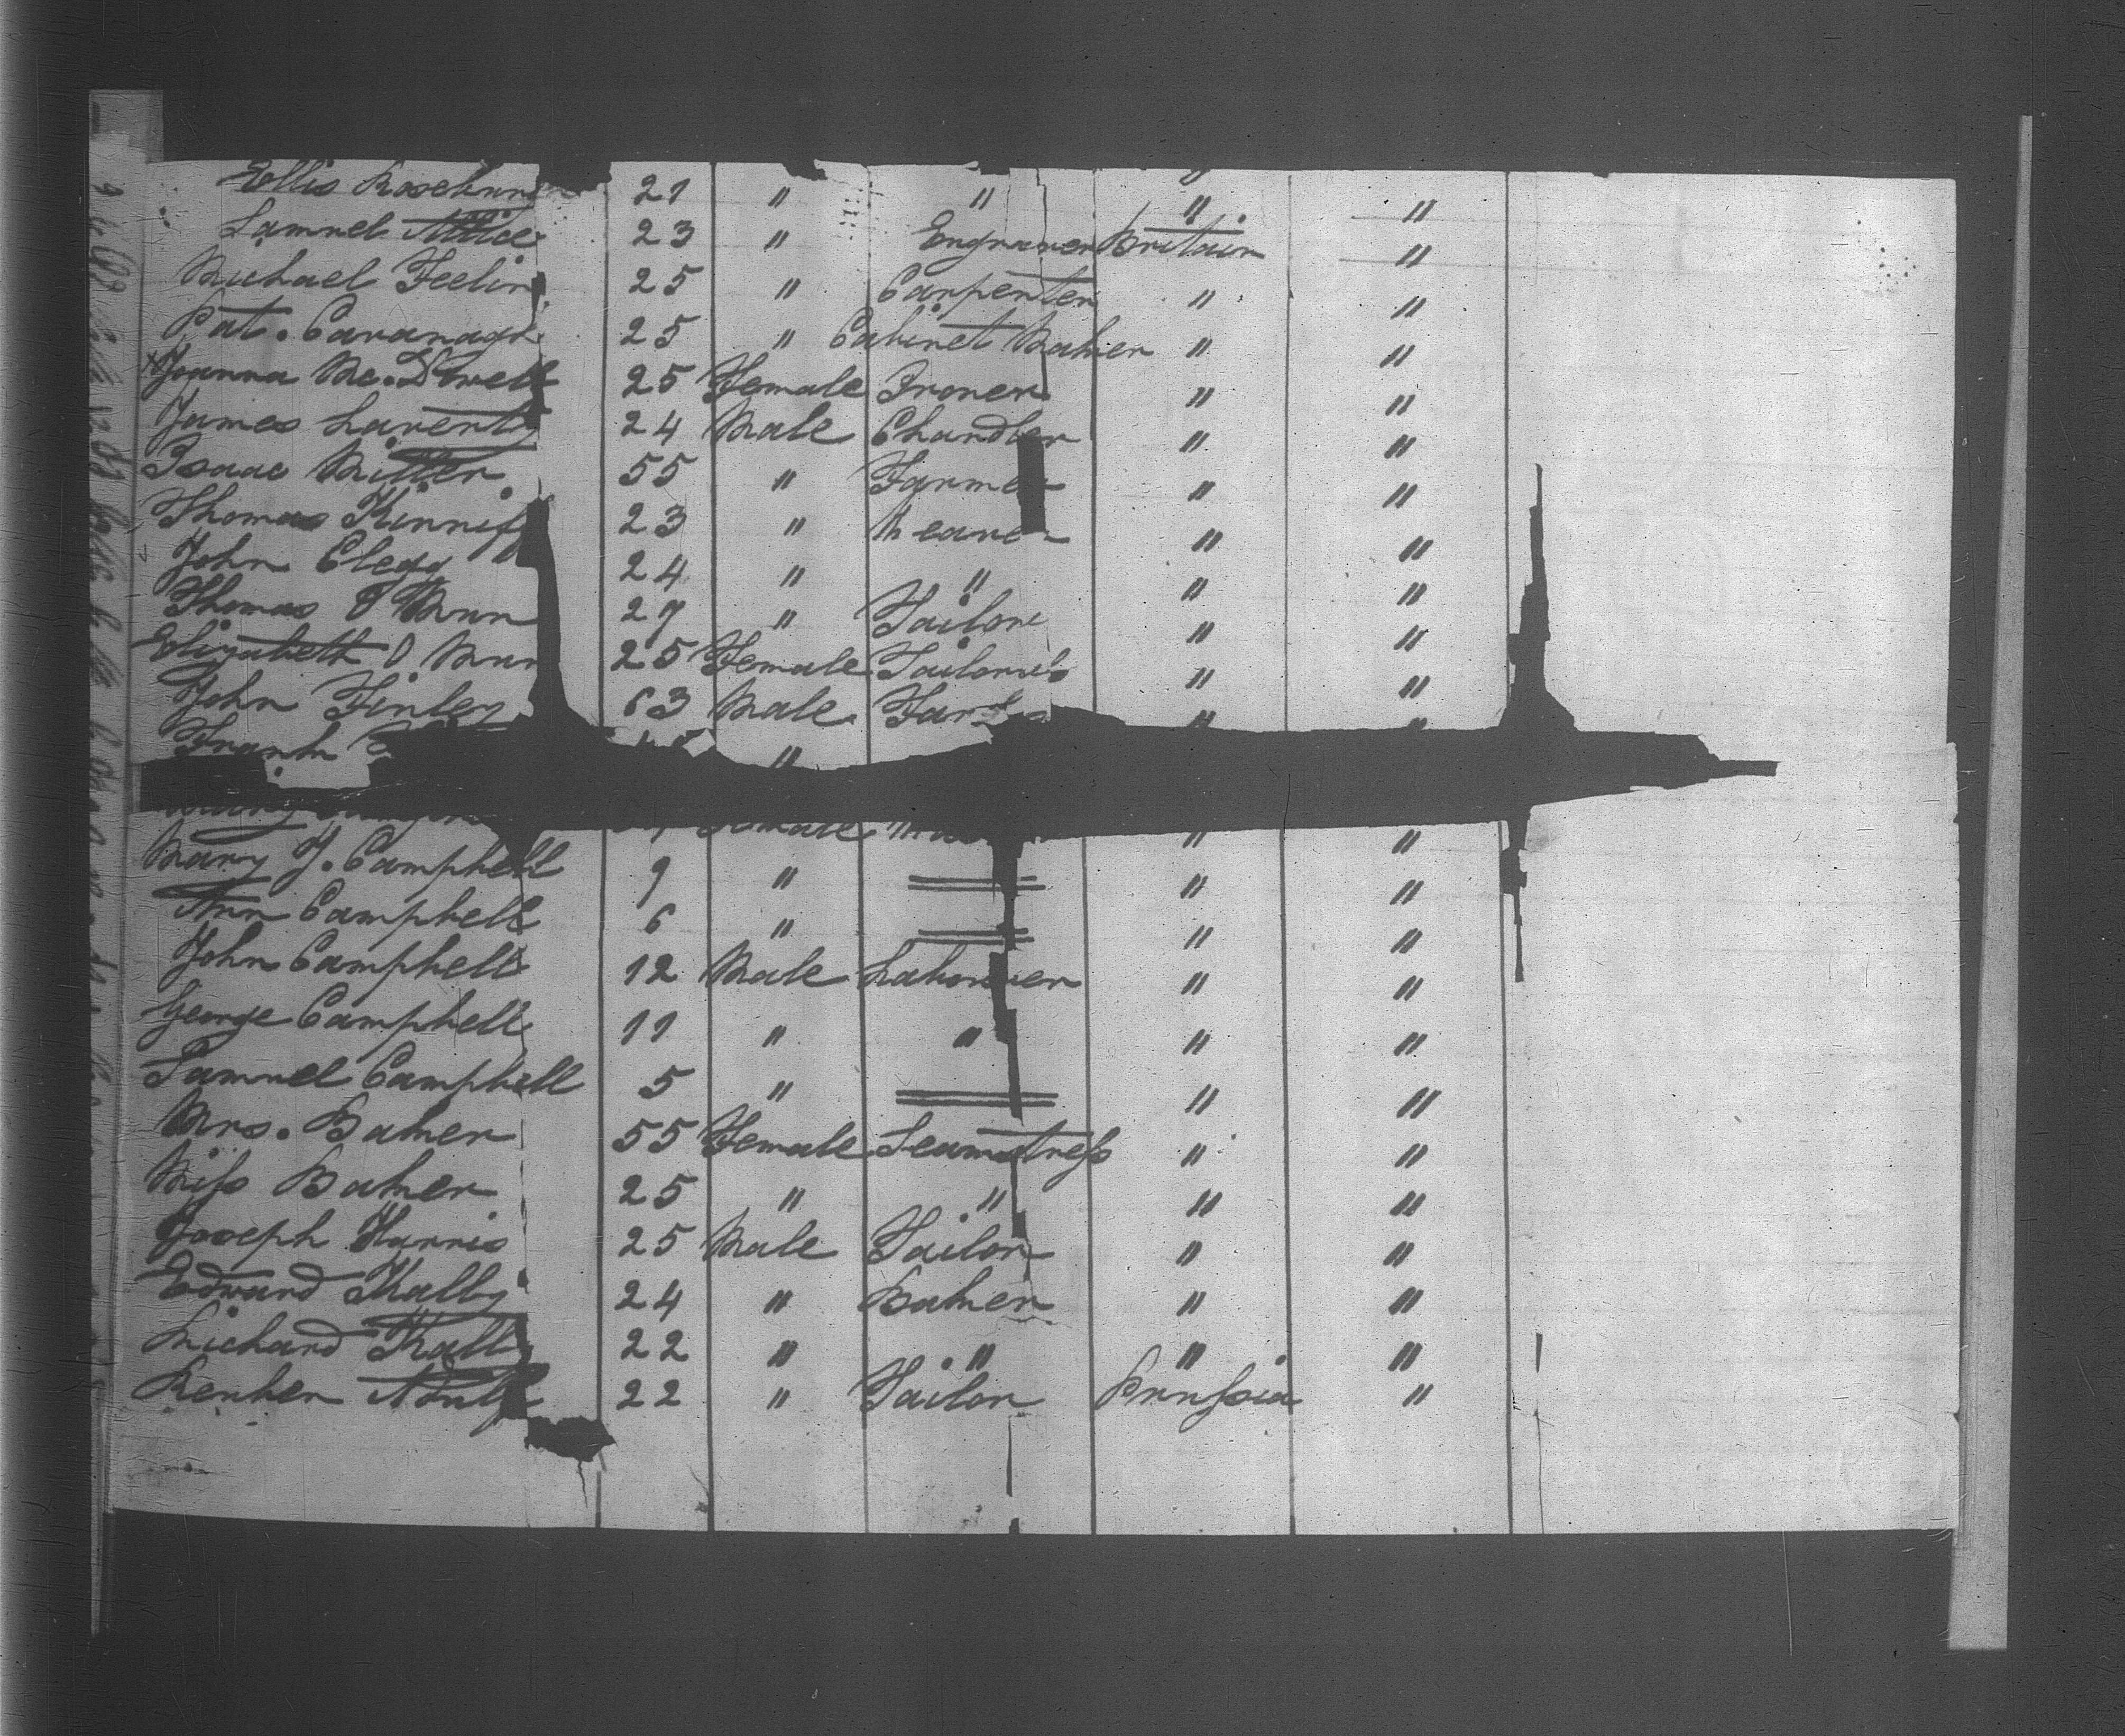 Ellis 21 " " " "
Samuel 23 " Engraver Britain "
Michael Feelin 25 " Carpenter " "
Pat. Cavanagh 25 " Cabinet Maker " "
Joanna Mc.Dowell 25 Female Ironer " "
James Laverty 24 Male Chandler " "
Isaac Miller 55 " Farmer " "
Thomas 23 " Weaver " "
John Clegg 24 " " " "
Thomas O Mun 27 " Tailor " "
Elizabeth O Mun 25 Female Tailoress " "
John Finley 63 Male " "
Frank "
Female " "
Mary J. Campbell 9 " " "
Ann Campbell 6 " " "
John Campbell 12 Male Labourer " "
George Campbell 11 " " " "
Samuel Campbell 5 " " "
Mrs. Baker 55 Female Seamstress " "
Miss Baker 25 " " " "
Joseph Harris 25 Male Tailor " "
Edward 24 " Baker " "
Richard 22 " " " "
22 " Tailor Prussia "